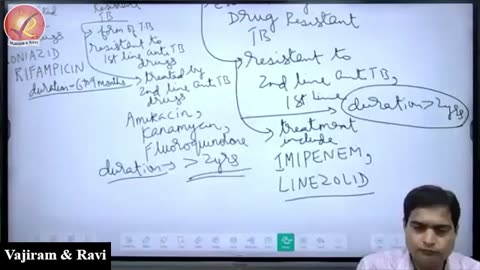 VAJIRAM & RAVI
Resistant
TB
drugs
→ form of TB
ISONIAZID
resistant to
1st line anti TB
drugs
RIFAMPICIN
duration = 6 to 9 months
→ treated by
2nd line anti TB
drugs
Amikacin,
Kanamycin,
Fluoroquinolone
duration → > 2yrs
Drug Resistant
TB
resistant to
2nd line anti TB,
1st line
duration > 2yrs
→ treatment
include
IMIPENEM,
LINEZOLID
Vajiram & Ravi